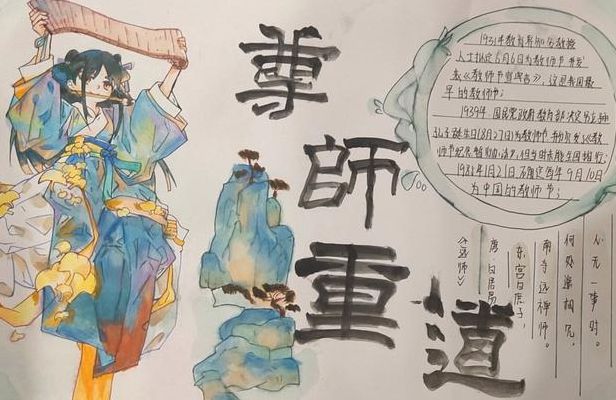 尊
師
重
道
1931年教育界知名教授
人士拟定6月6日为教师节并发
表《教师节宣言》，这是我国最
早的教师节；
1939年 国民党政府教育部决定另立
孔子诞生日(8月27日)为教师节 并颁发了《教
师节纪念暂行办法》，但当时未能全国推行
1981年1月21日 确定每年9月10日
为中国的教师节；
《远师》
唐 白居易
东宫白庶子，
南寺远禅师。
何处遥相见，
心无一事时。